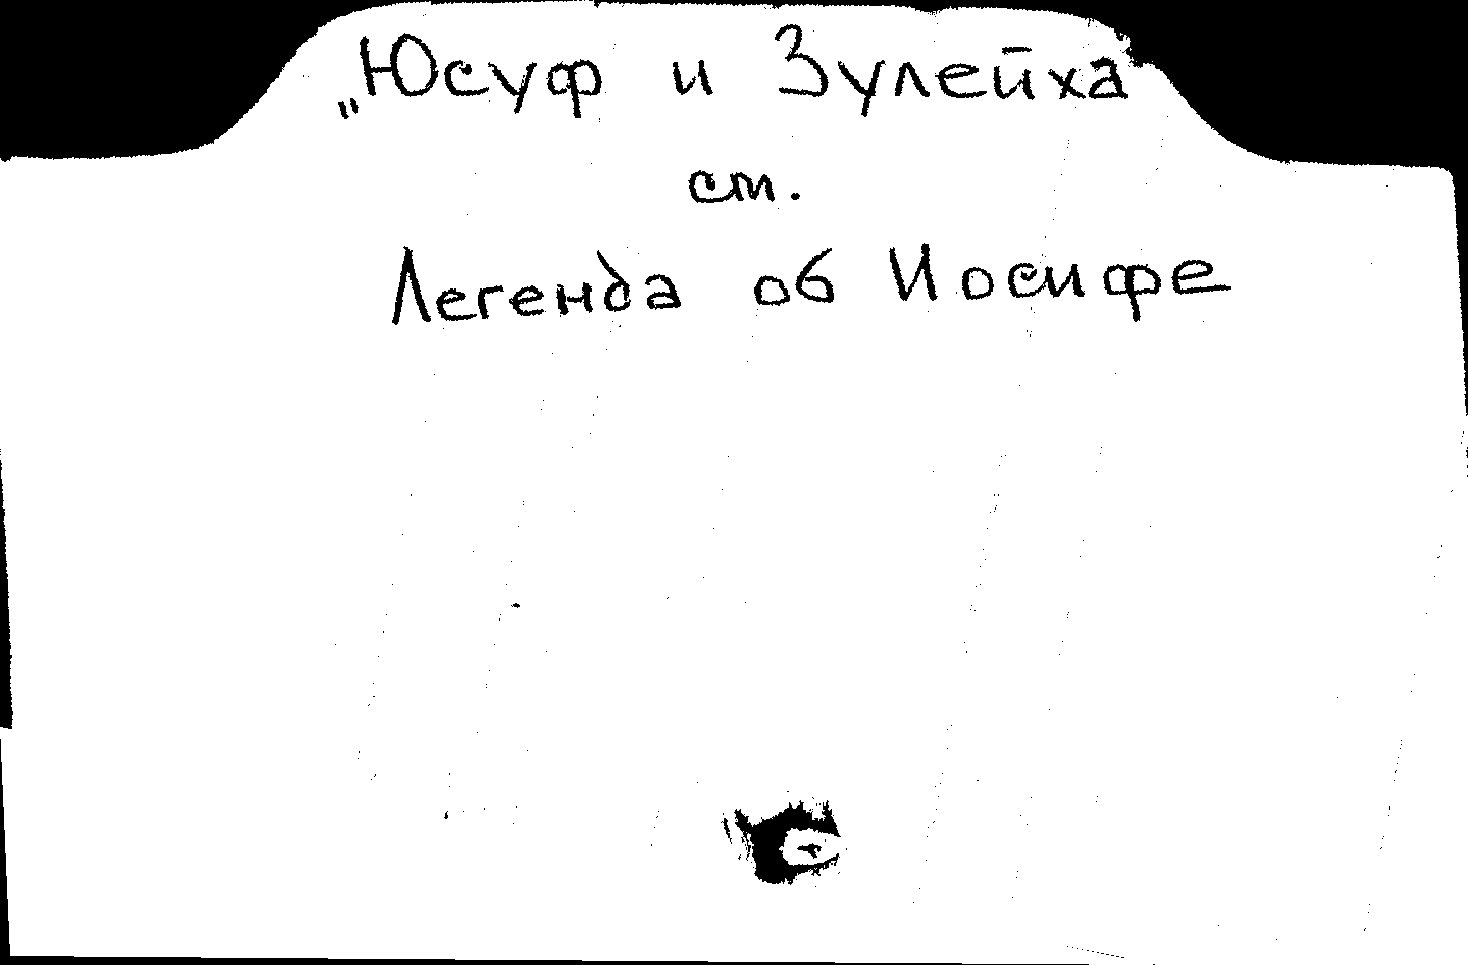 „Юсуф и Зулейха"
ст.
Легенда об Иосифе